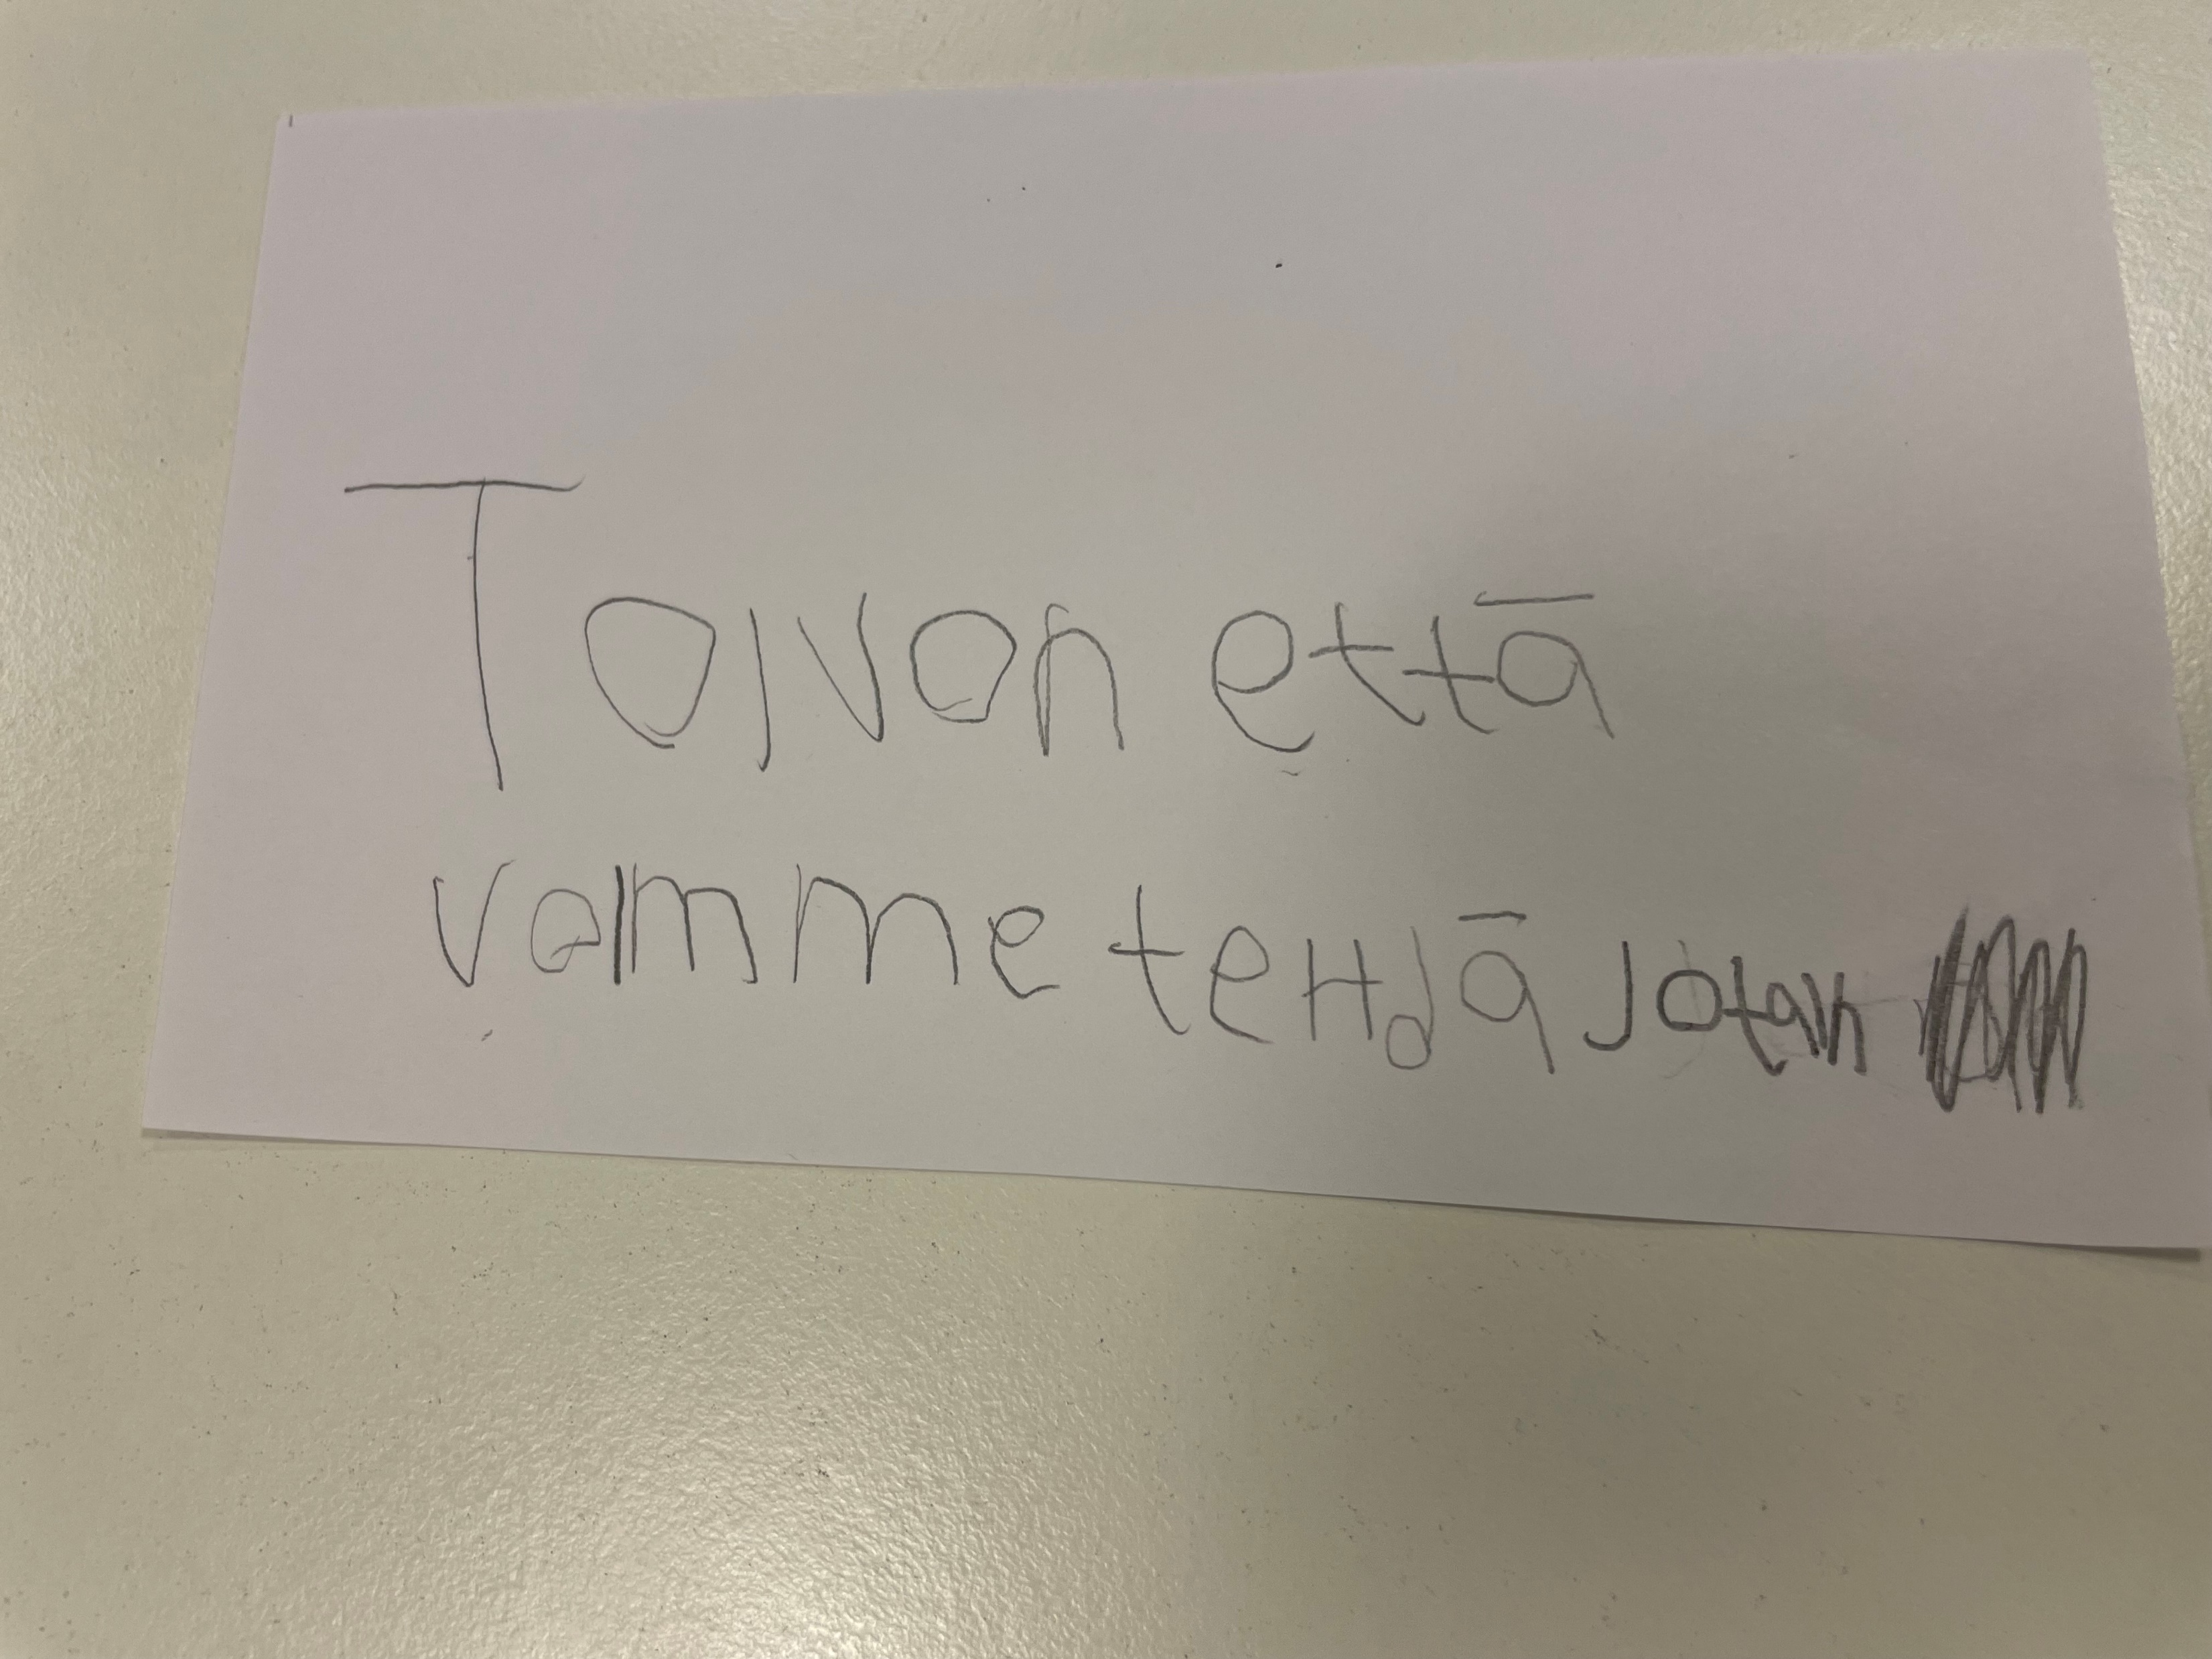 Toivon että
voimme tehdä jotain